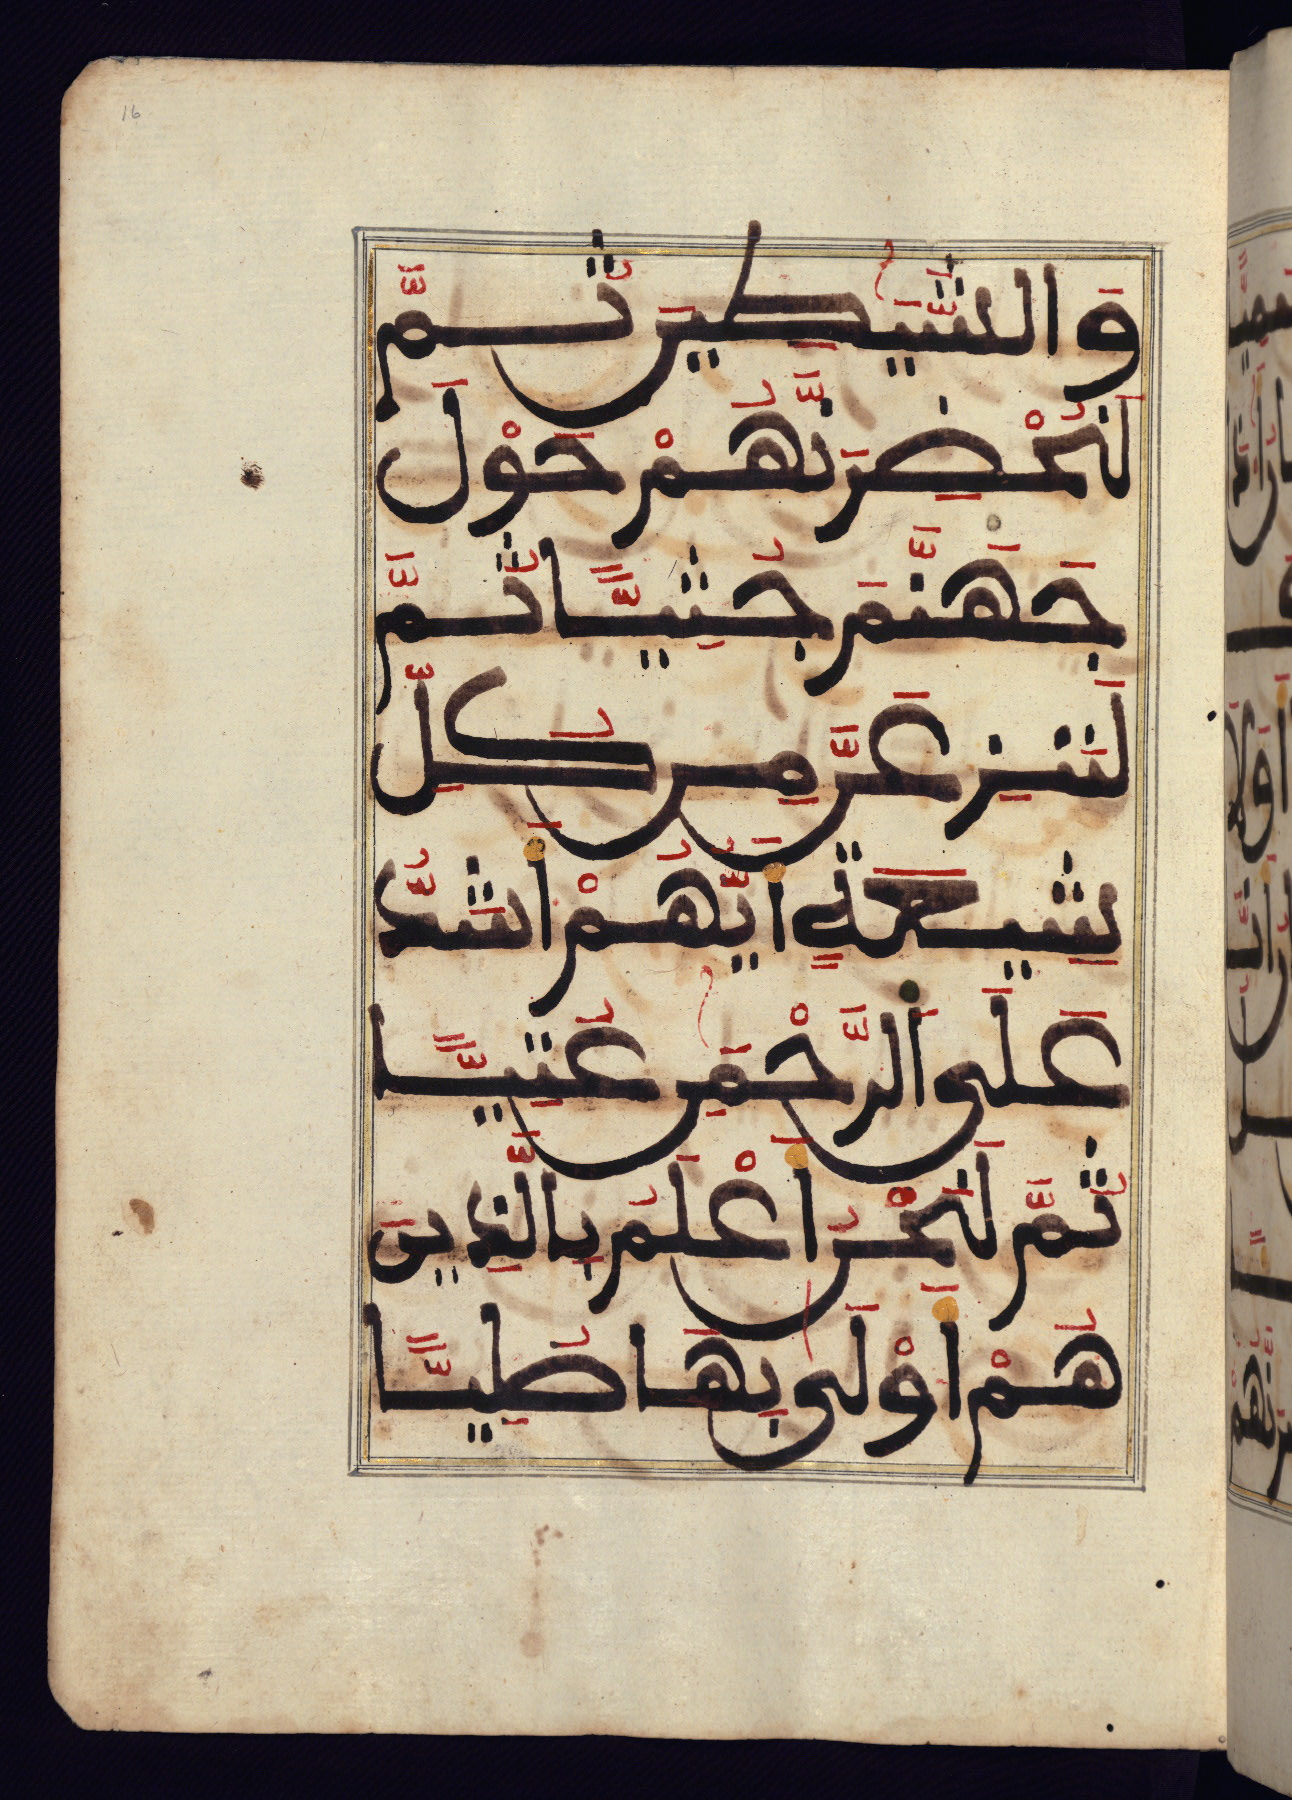 16
وَالشَّيَٰطِينَ ثُمَّ
لَنُحْضِرَنَّهُمْ حَوْلَ
جَهَنَّمَ جُثِيّٗا ثُمَّ
لَنَنزِعَنَّ مِن كُلِّ
شِيعَةٍ أَيُّهُمْ أَشَدُّ
عَلَى اَلرَّحْمَٰنِ عُتِيّٗا
ثُمَّ لَنَحْنُ أَعْلَمُ بِالَّذِينَ
هُمْ أَوْلَىٰ بِهَا صُلِيّٗا